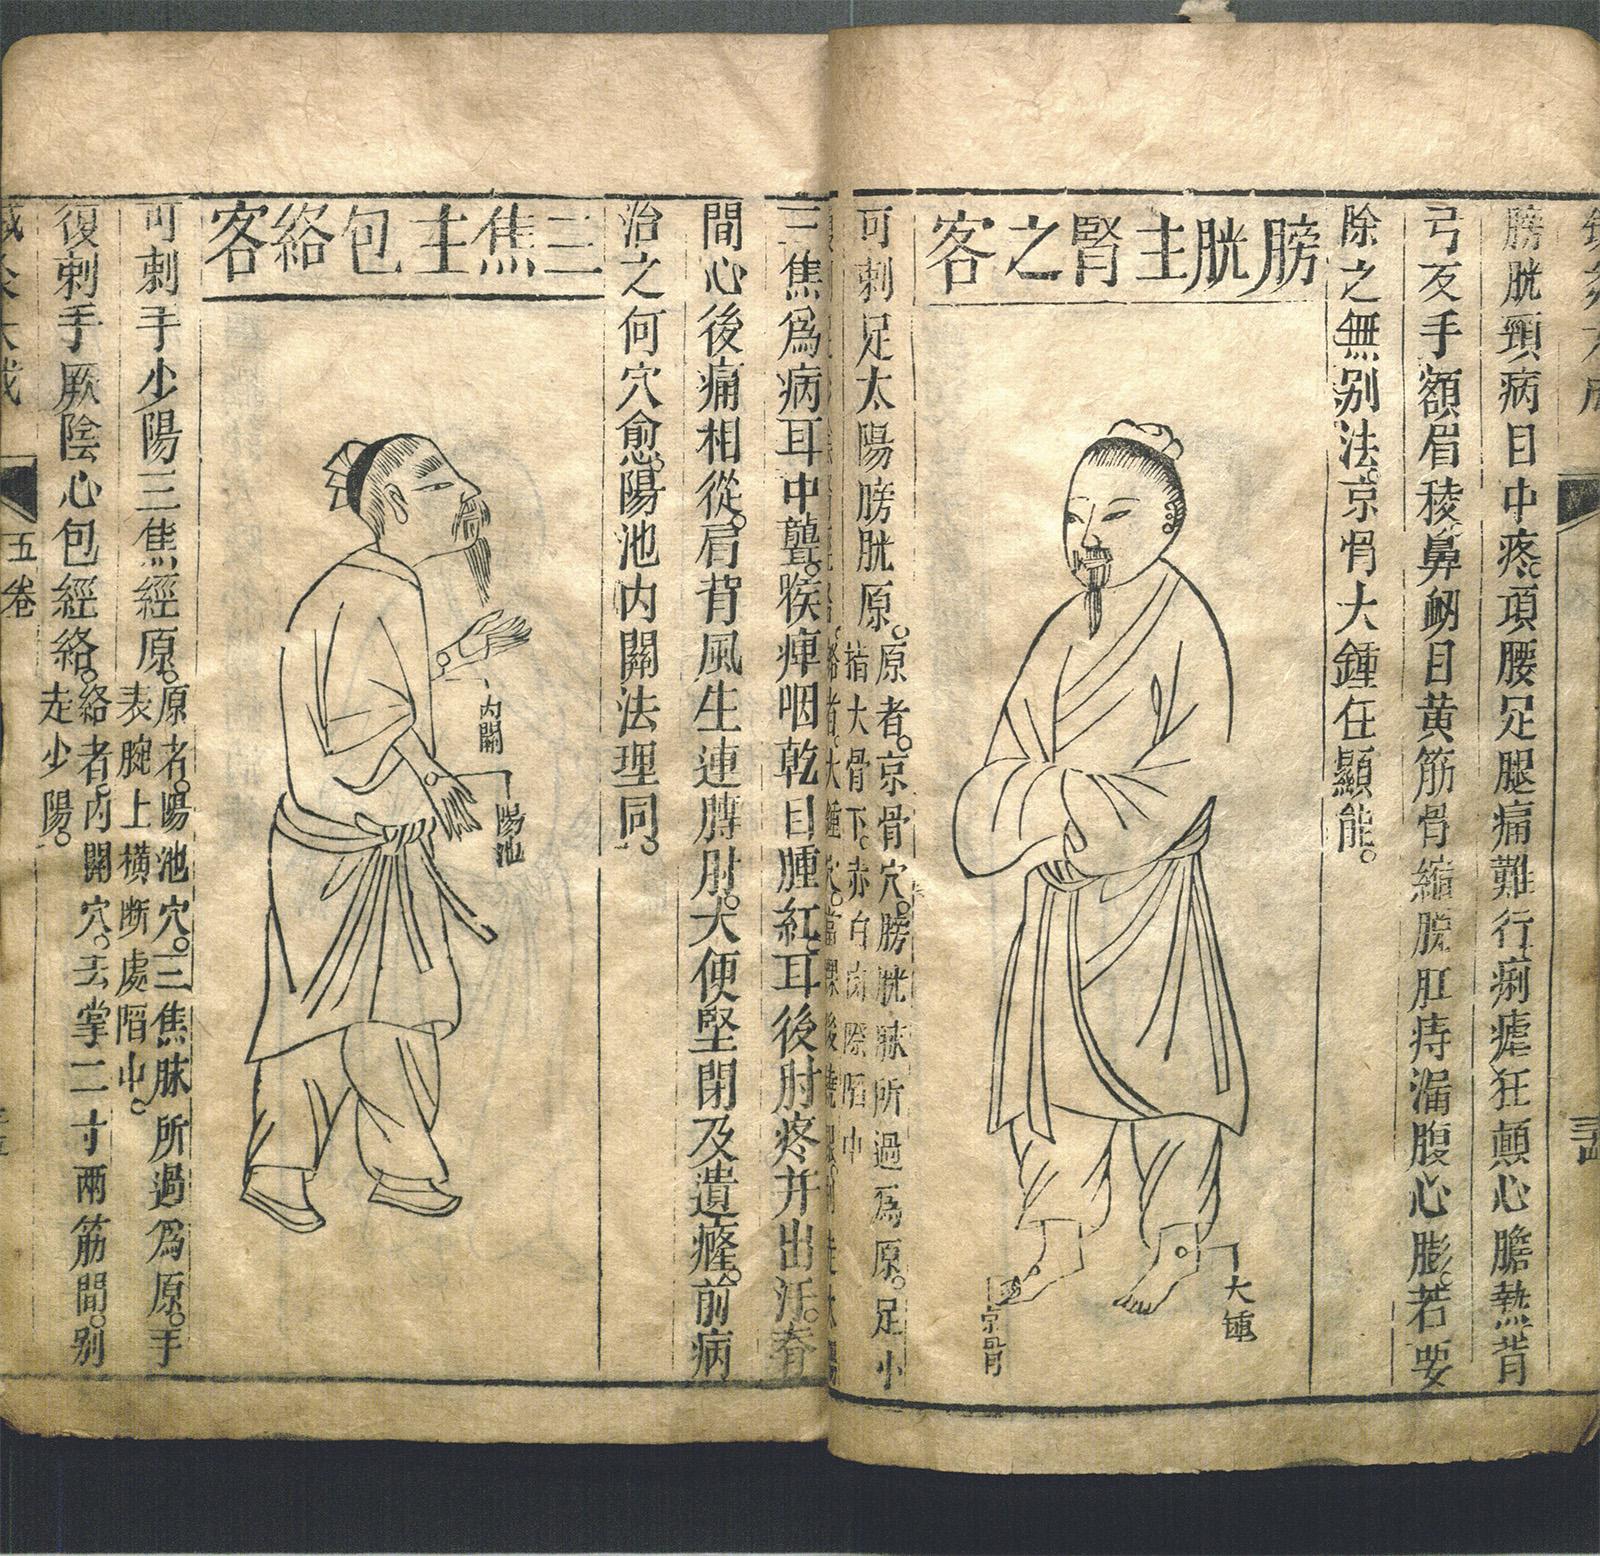 膀胱頸病目中疼。項腰足腿痛難行。痢瘧狂顛心膽熱背
弓反手額眉稜鼻衂目黃筋骨縮脫肛痔漏腹心膨。若要
除之無別法。京骨大鍾任顯能。
膀胱主腎之客
大鍾
京骨
可刺足太陽膀胱原。原者。京骨穴。膀胱脉所過爲原。足小
指大骨下。赤白肉際陷中
三焦爲病耳中聾。喉痺咽乾目腫紅。耳後肘疼并出汗。脊
間心後痛相從。肩背風生連膊肘。大便堅閉及遺癃。前病
治之何穴愈。陽池內關法理同。
三焦主包絡客
內關
陽池
可刺手少陽三焦經原。原者。陽池穴。三焦脉所過爲原。手
表腕上橫斷處陷中。
復刺手厥陰心包經絡。絡者。內關穴。去掌二寸兩筋間。別
走少陽。
五卷